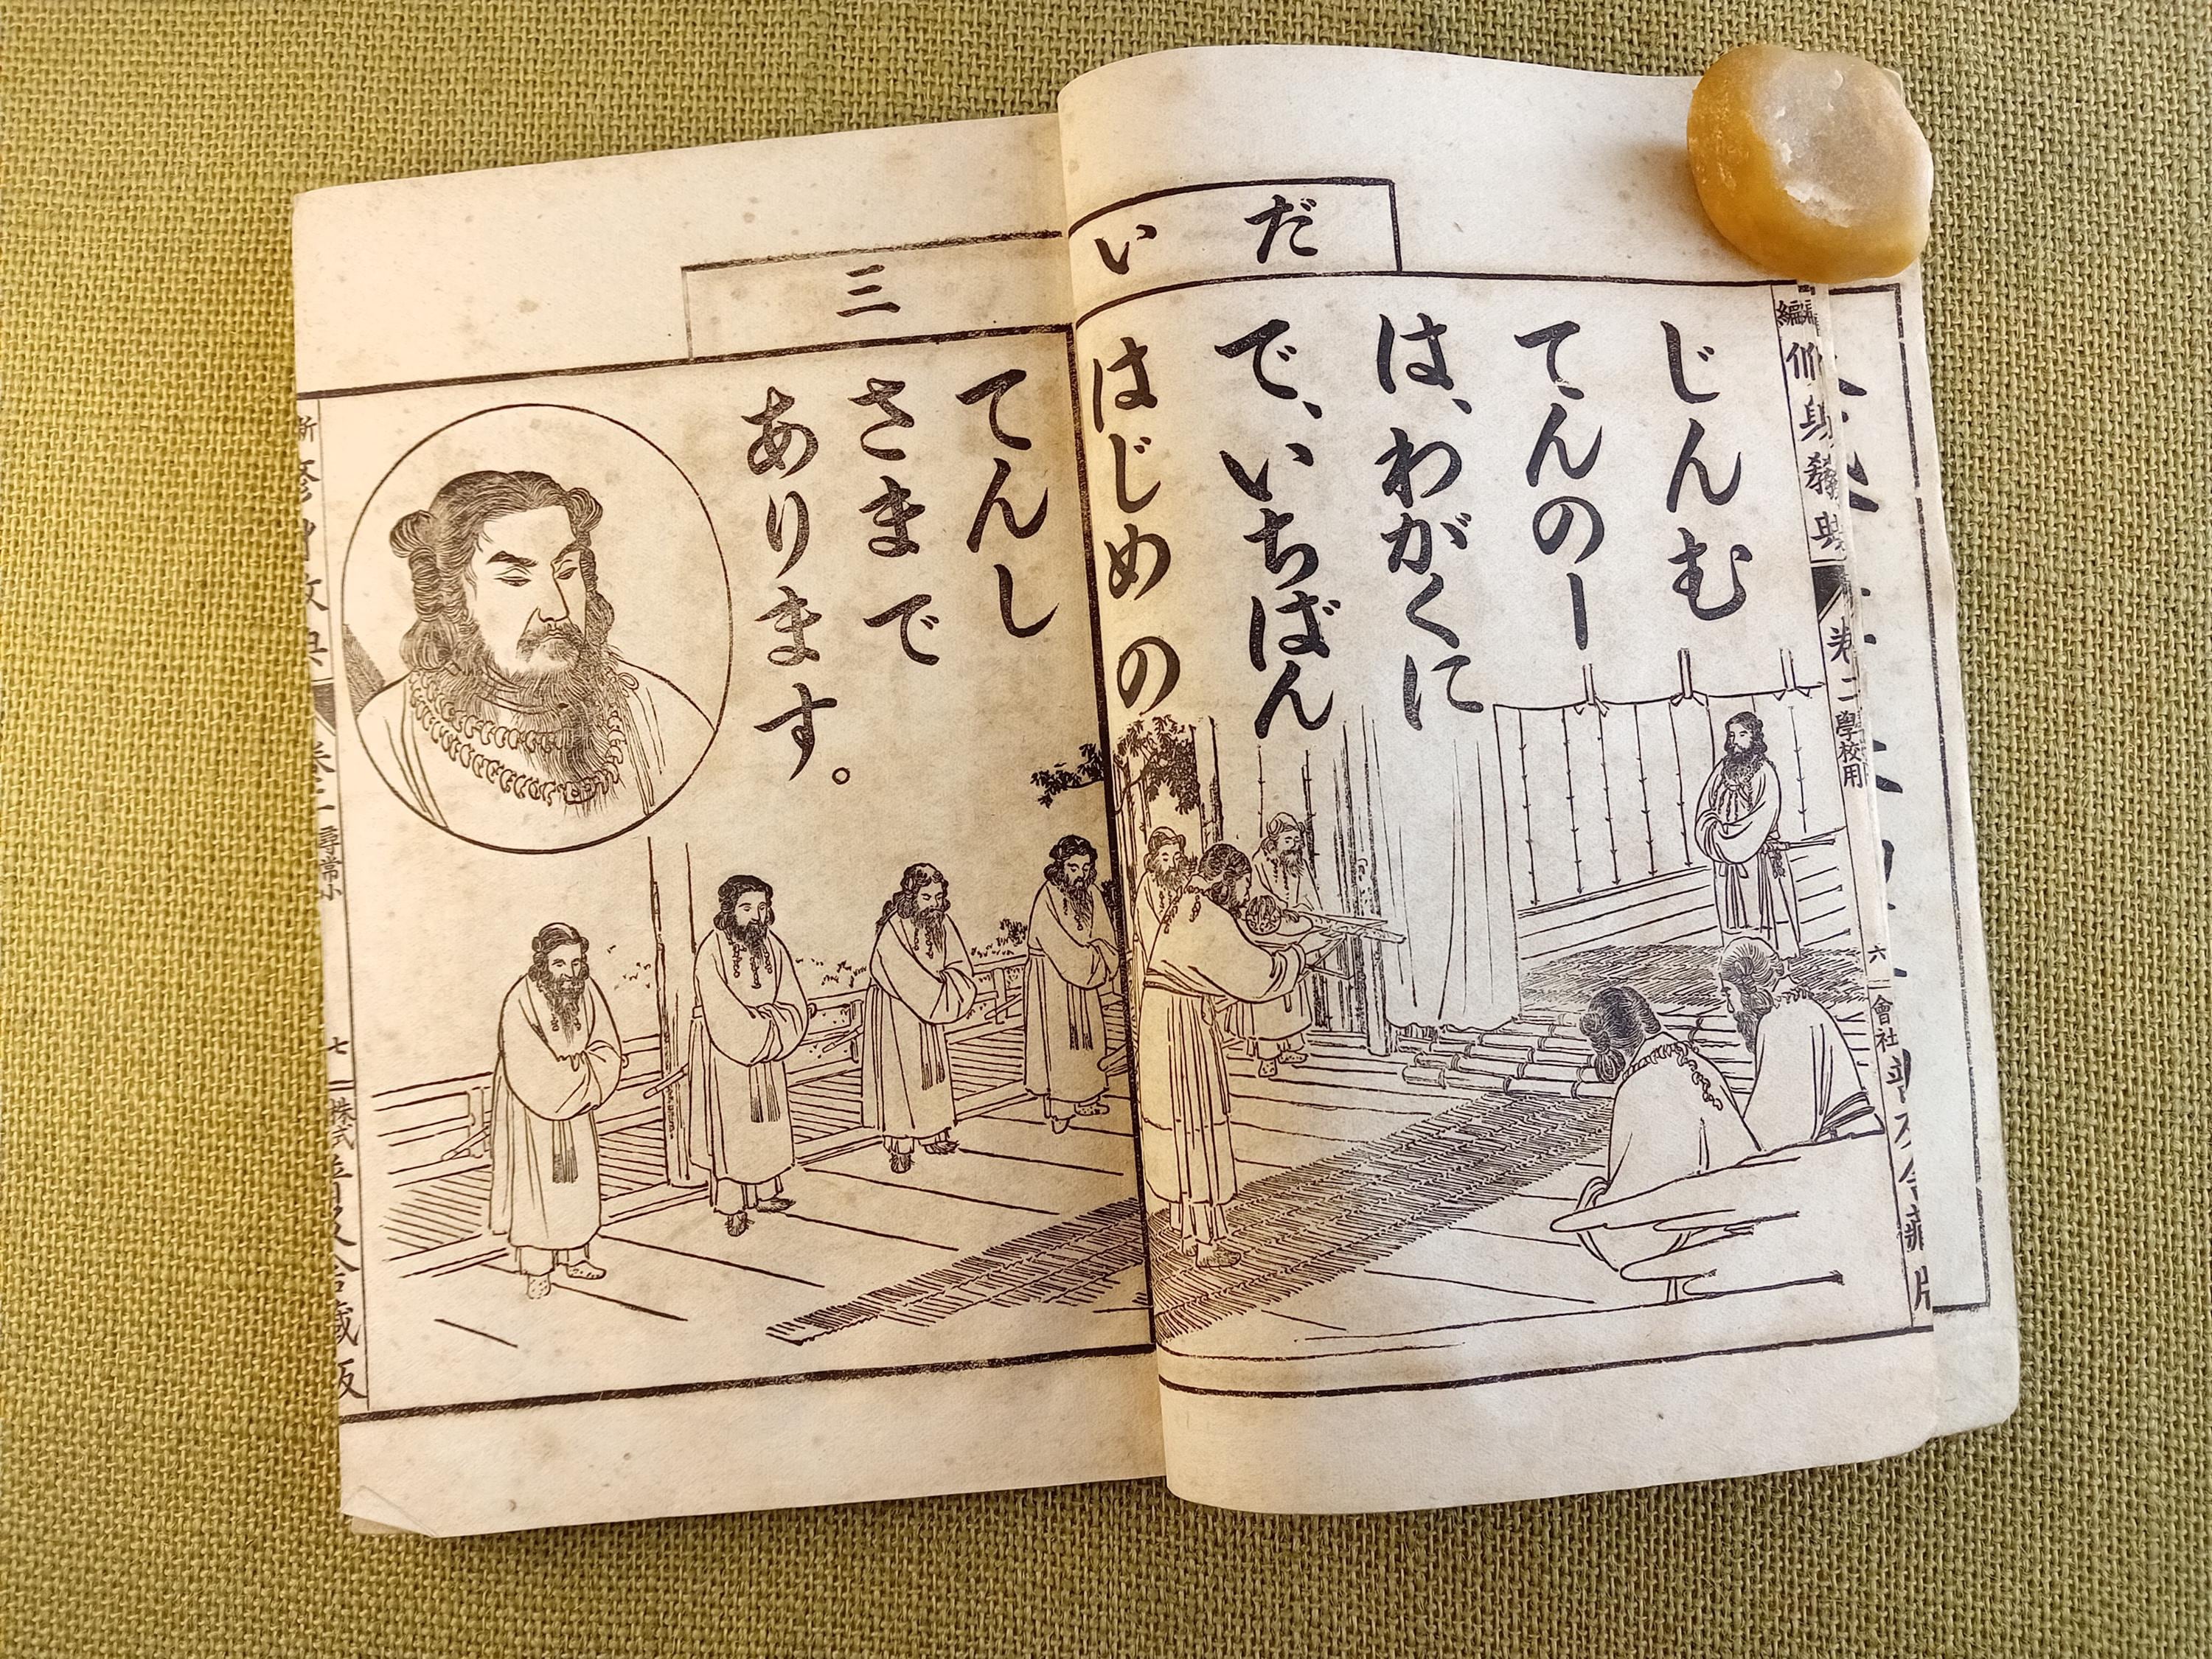 だい
三
じんむ
てんのー
は、わがくに
で、いちばん
はじめの
てんし
さまで
あります。
修身教典
卷二
學校用
六
會社
卷二
尋常小
七
株式